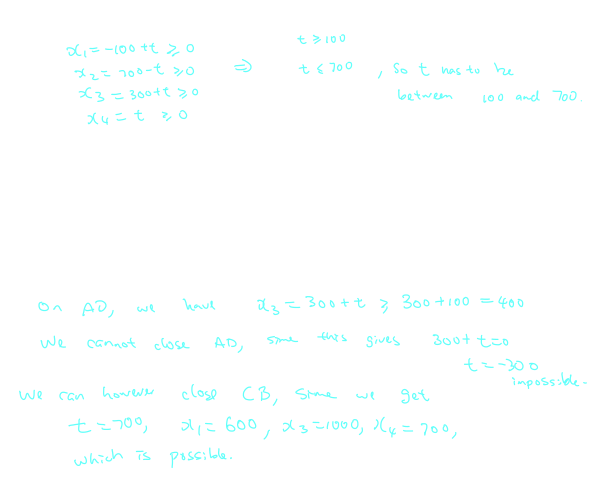 x₁ = -100 + t ≥ 0 t ≥ 100
x₂ = 700 - t ≥ 0 ⇒ t ≤ 700, so t has to be
x₃ = 300 + t ≥ 0 between 100 and 700.
x₄ = t ≥ 0
On AD, we have x₃ = 300 + t ≥ 300 + 100 = 400
We cannot close AD, since this gives 300 + t = 0
t = -300
impossible.
We can however close CB, since we get
t = 700, x₁ = 600, x₃ = 1000, x₄ = 700,
which is possible.